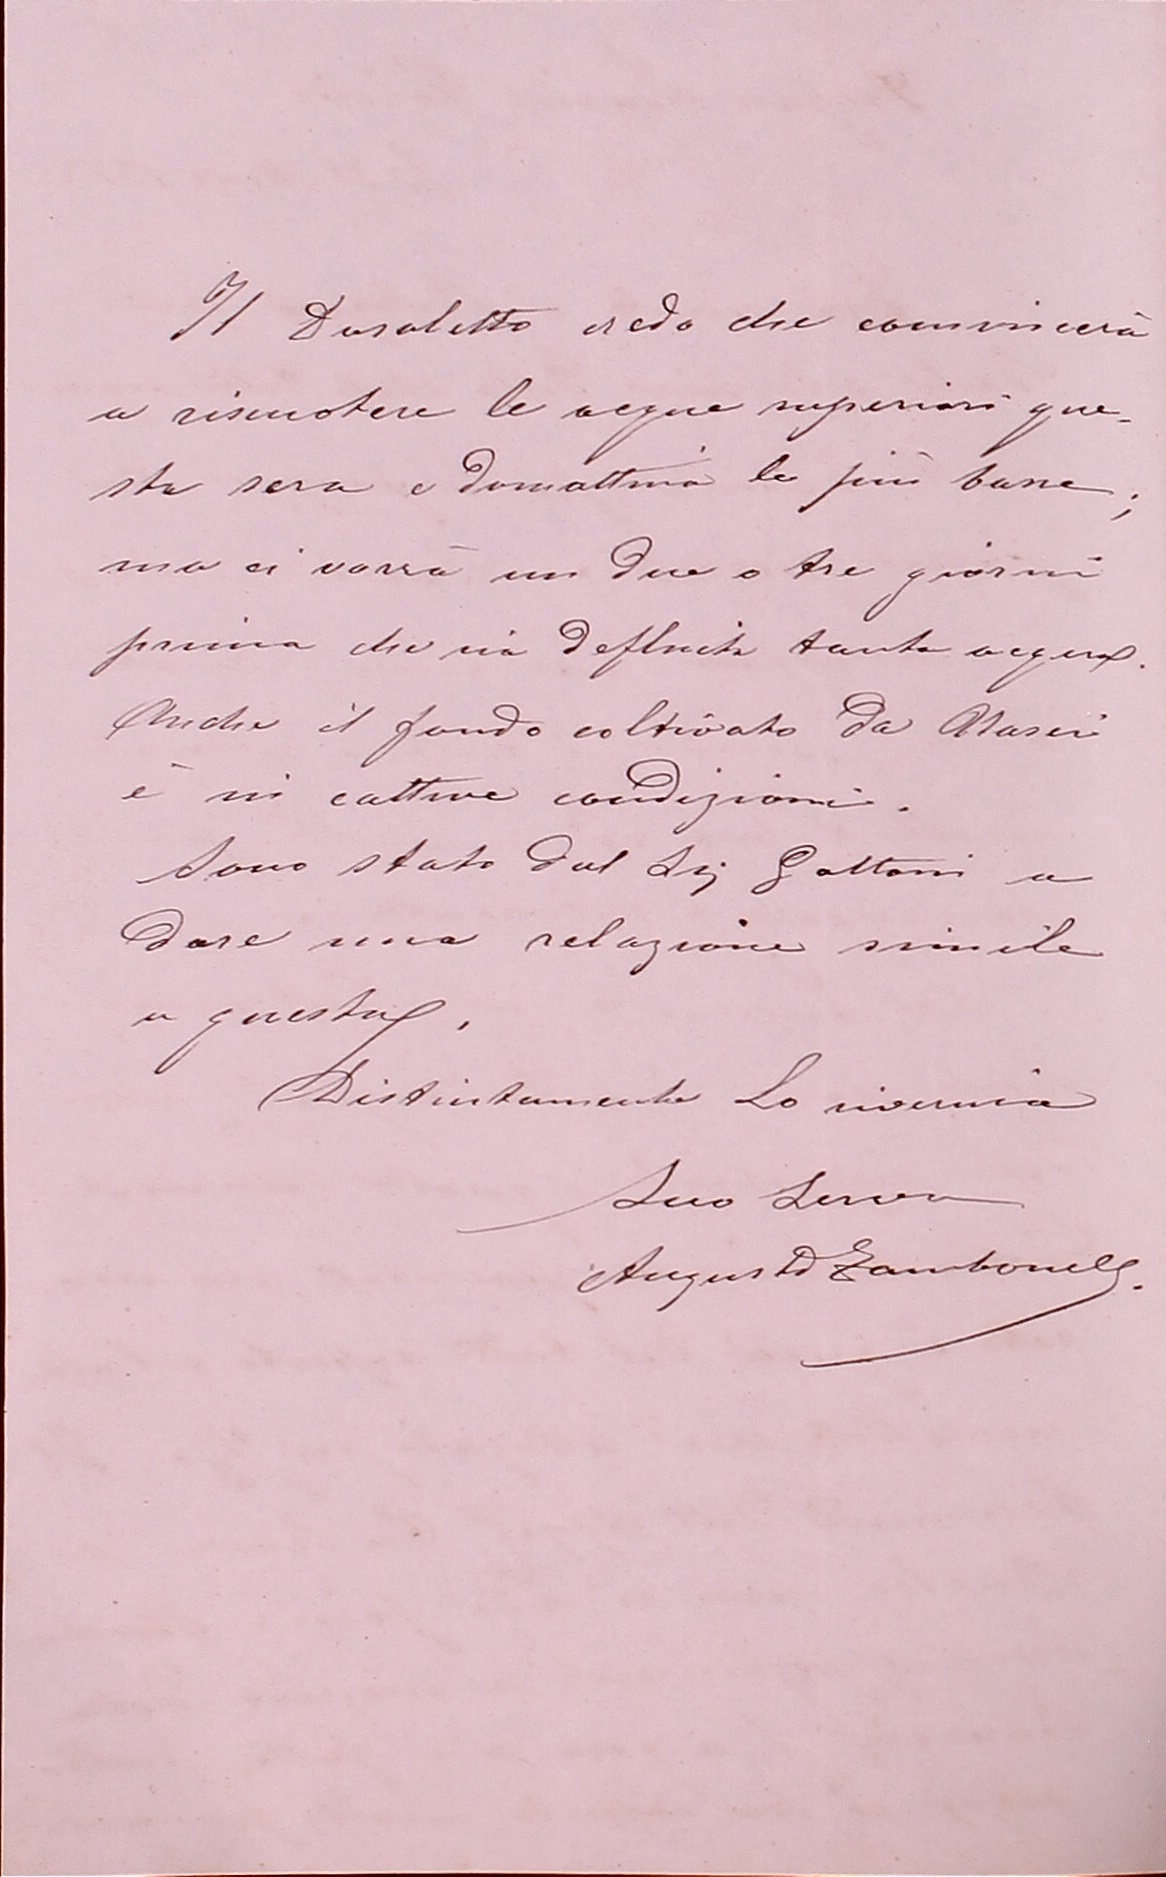 Il Dosoletto credo che comincierà
a riscuotere le acque superiori que-
sta sera e domattina le più basse;
ma ci vorrà un due o tre giorni
prima che sia defluita tanta acqua.
Anche il fondo coltivato da Masiri
è in cattive condizioni.
Sono stato dal Sig Gattoni a
dare una relazione simile
a questa.
Distintamente Lo riverisco
Suo Servo
Augusto Zambonelli.